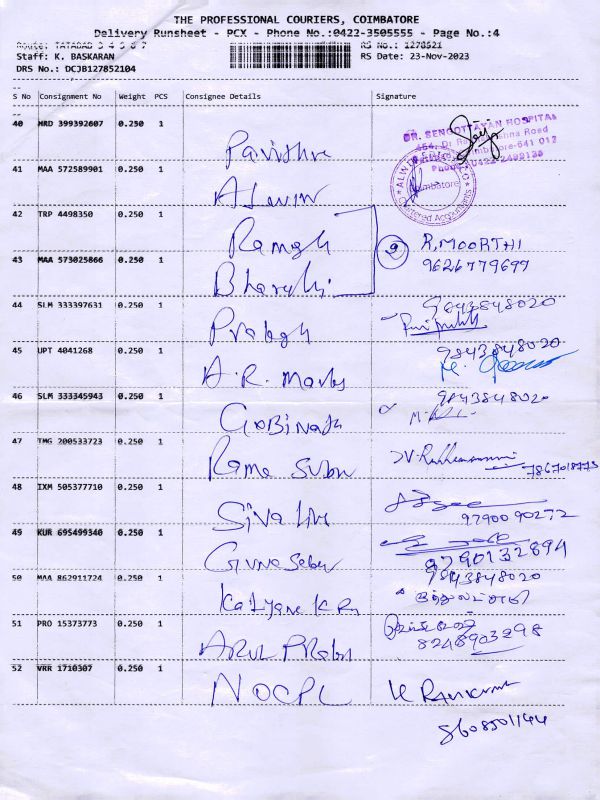 THE PROFESSIONAL COURIERS, COIMBATORE
Delivery Runsheet - PCX - Phone No.:0422-3505555 - Page No.:4
Route: TATABAD 3 4 5 6 7 RS No.: 1278521
Staff: K. BASKARAN RS Date: 23-Nov-2023
DRS No.: DCJB127852104
S No Consignment No Weight PCS Consignee Details Signature
40 MRD 399392607 0.250 1 Pavithra
DR. SENGOTTAYAN HOSPITAL
Road
Coimbatore-641 012
Coimbatore
Chartered Accountants
41 MAA 572589901 0.250 1 Alwin
42 TRP 4498350 0.250 1 Ramesh
2 R. MOORTHI
43 MAA 573025866 0.250 1 Bharathi 9626779699
44 SLM 333397631 0.250 1 Prabagh 9843848020
45 UPT 4041268 0.250 1 A.R. 9843848020
46 SLM 333345943 0.250 1 GOBINATH 9843848020
47 TMG 200533723 0.250 1 Rama Subu 7867018773
48 IXM 505377710 0.250 1 Siva 9790090272
49 KUR 695499340 0.250 1 Guna Seker 9790132894
50 MAA 862911724 0.250 1 Kalyana K 9843848020
51 PRO 15373773 0.250 1 ARUL PRabu 8248903298
52 VRR 1710307 0.250 1 NOCPL
8608501144